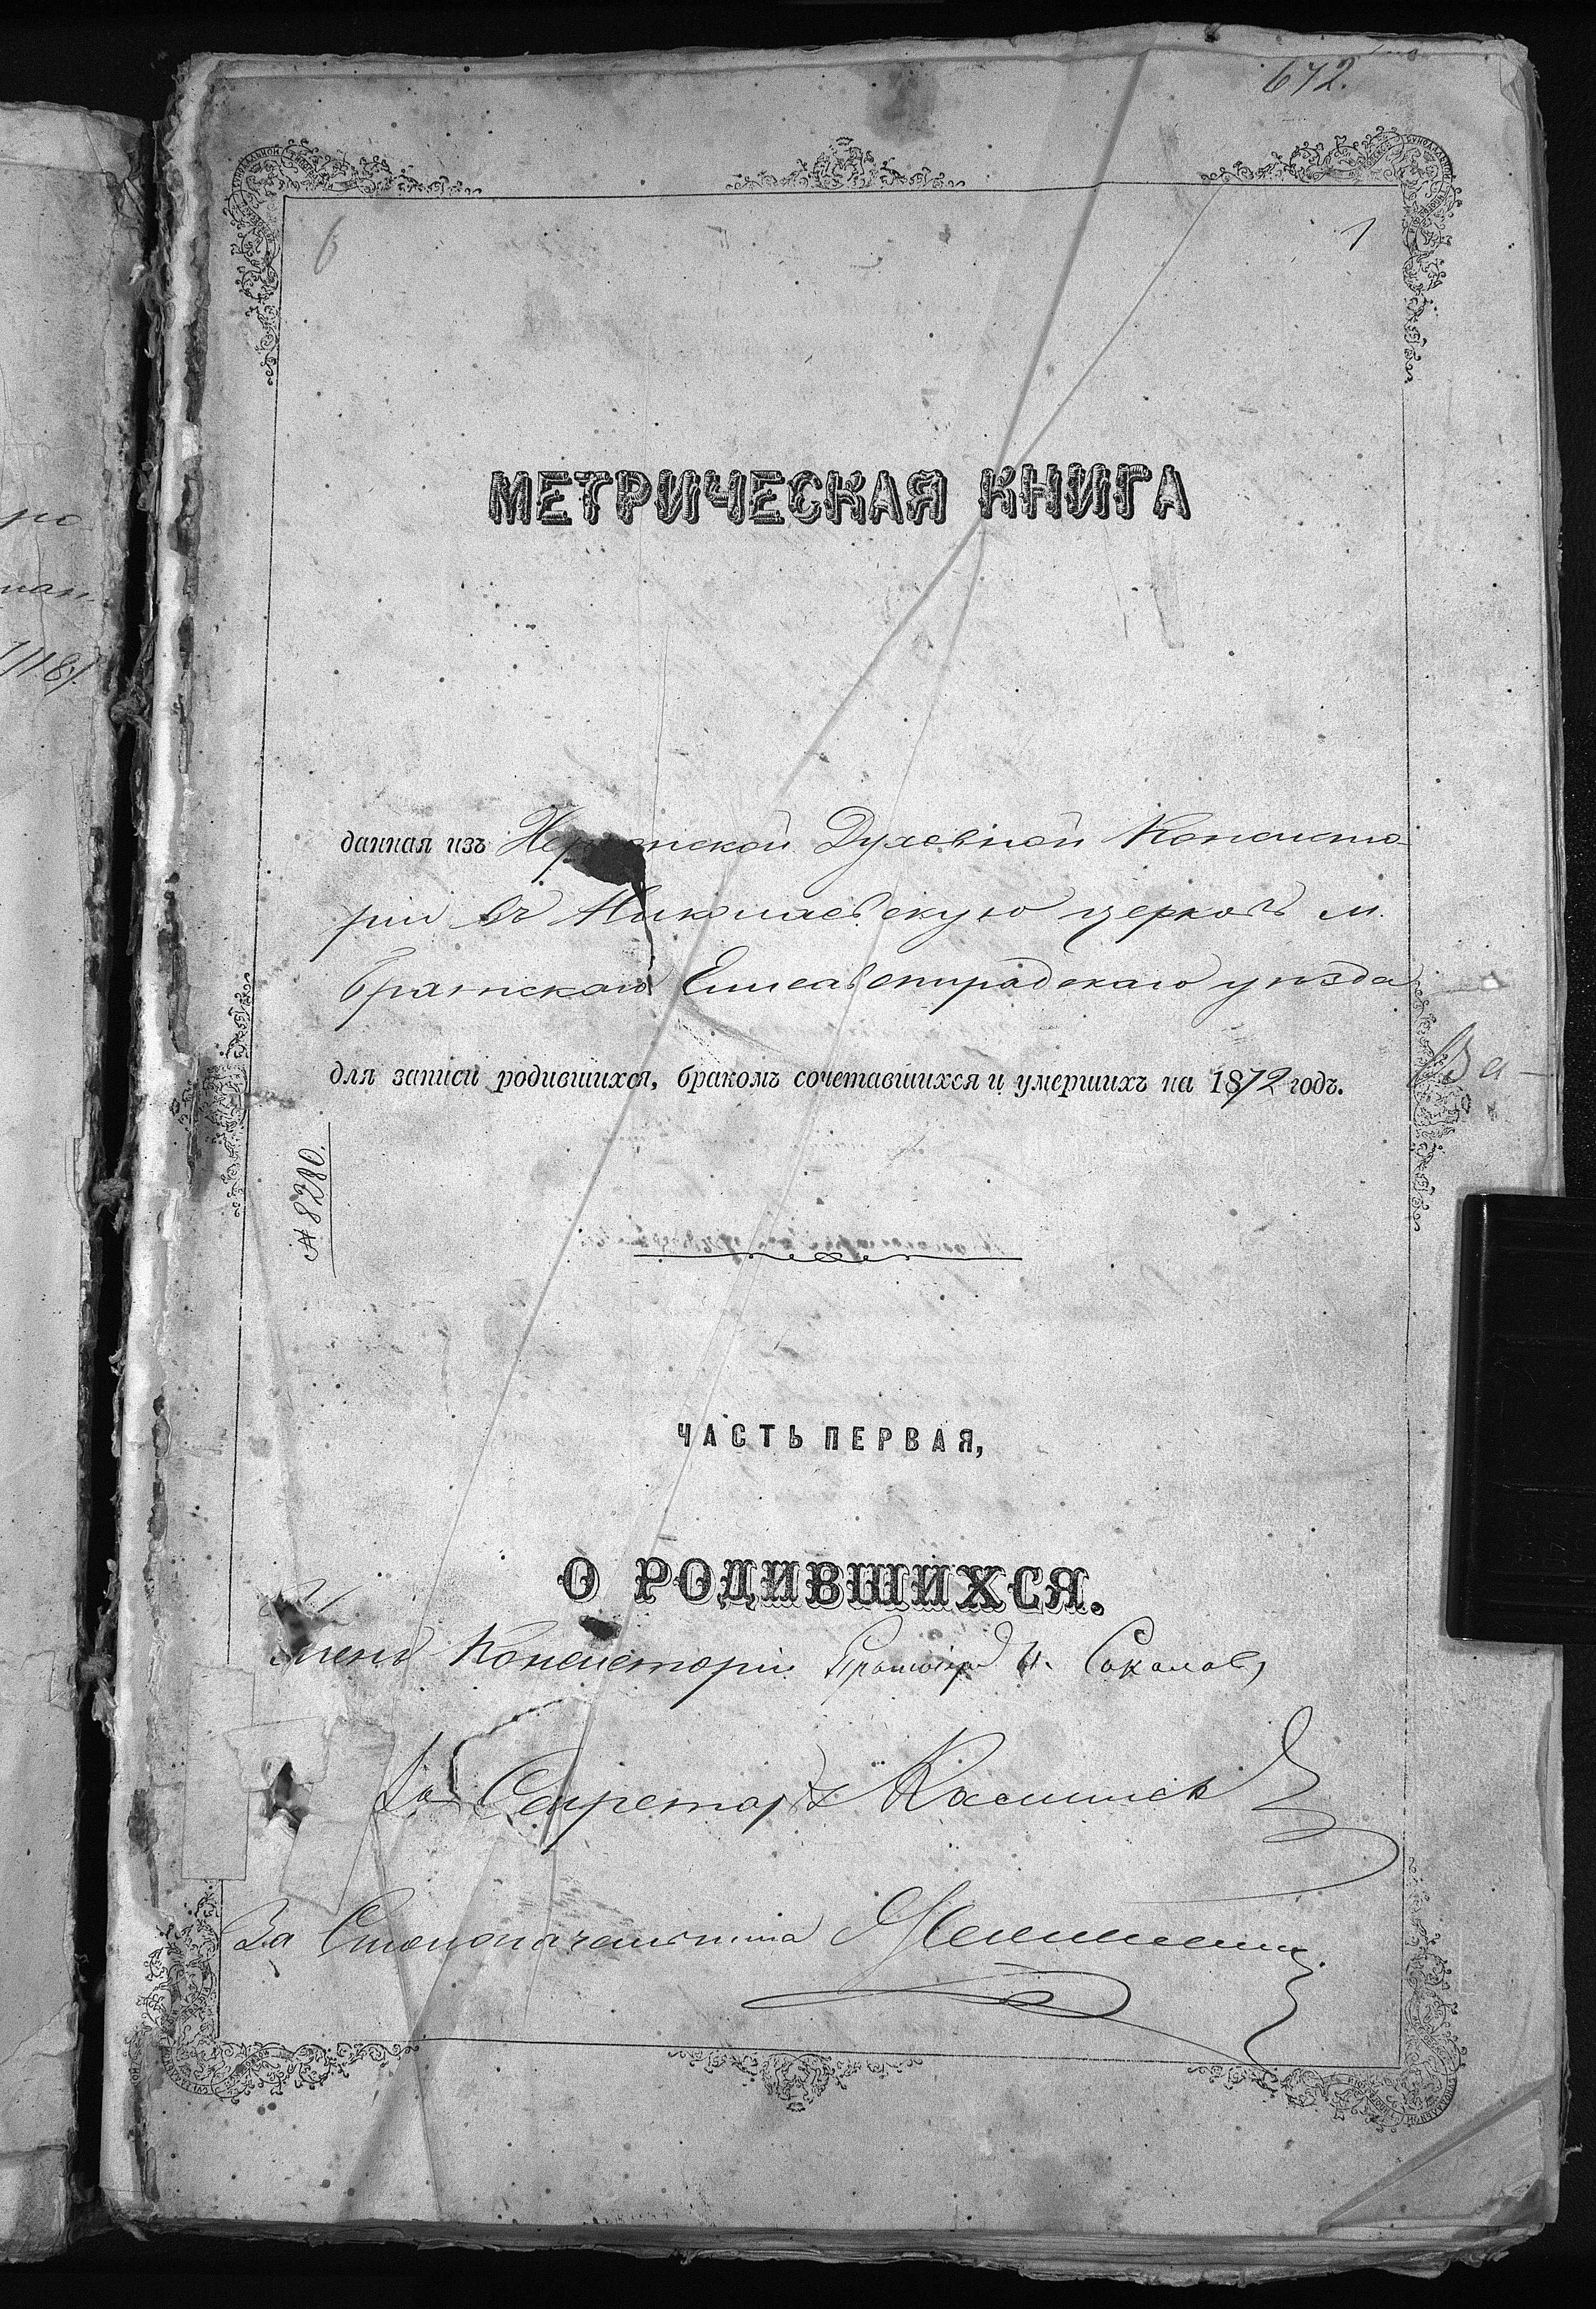 672.
6
1
МЕТРИЧЕСКАЯ КНИГА
данная изъ Херсонской Духовной Консисто-
ріи въ Николаевскую церковь м.
Братскаго Елисаветградскаго уѣзда
для записи родившихся, бракомъ сочетавшихся и умершихъ на 1872 годъ.
№ 8280.
ЧАСТЬ ПЕРВАЯ,
О РОДИВШИХСЯ.
Членъ Консисторіи Протоіерей Соколовъ
За Секретаря
За Столоначальника